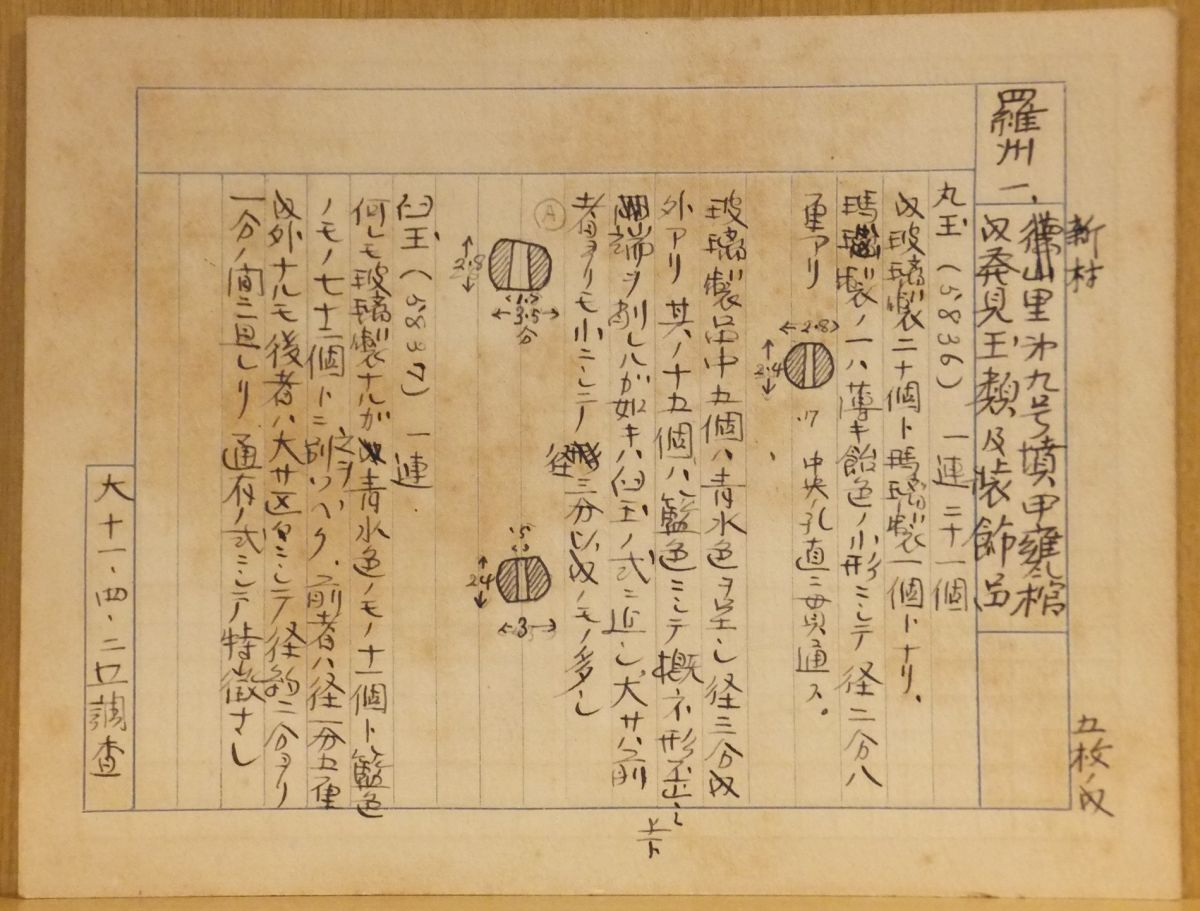 羅州一、
新村
德山里第九号墳甲甕棺
内発見玉類及装飾品
五枚ノ内
丸玉(5836) 一連 二十一個
内玻璃製二十個ト瑪瑙製一個トナリ、
瑪瑙製ノ一ハ薄キ飴色ノ小形ニシテ径二分八
厘アリ
2.8
2.4
.7 中央孔直ニ貫通ス。
玻璃製品中五個ハ青水色ヲ呈シ径三分内
外アリ其ノ十五個ハ藍色ニシテ概ネ形歪ニシ
上下
両端ヲ削レルガ如キハ臼玉ノ式ニ近シ、大サハ前
者ヨリモ小ニシテ径三分以内ノモノ多シ
A
2.8
3.5
分
.5
2.4
3
臼玉(5837) 一連
何レモ玻璃製ナルガ内青水色ノモノ十一個ト藍色
ノモノ七十二個トニ之ヲ別ツベク、前者ハ径一分五厘
内外ナルモ後者ハ大サ区々ニシテ径約二分ヨリ
一分ノ間ニ亘レリ 通有ノ式ニシテ特徴ナシ
大十一、四、二五調査